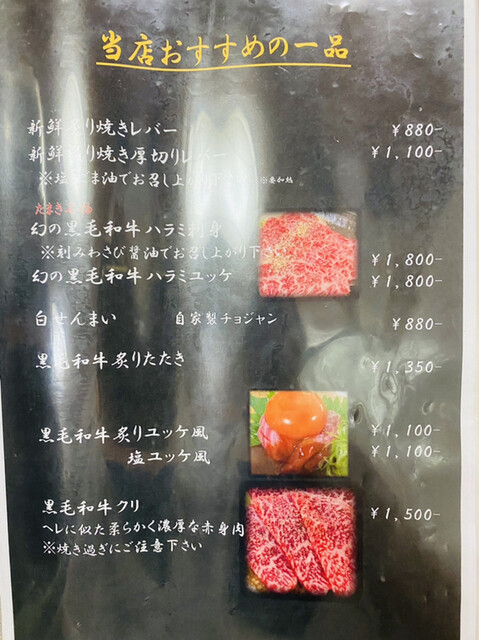 当店おすすめの一品
新鮮 り焼きレバー ¥880-
新鮮 り焼き厚切りレバー ¥1,100-
※塩ごま油でお召し上がり下さい ※要加熱
幻の黒毛和牛ハラミ刺身 ¥1,800-
※刻みわさび醤油でお召し上がり下さい
幻の黒毛和牛ハラミユッケ ¥1,800-
白せんまい 自家製チョジャン ¥880-
黒毛和牛炙りたたき ¥1,350-
黒毛和牛炙りユッケ風 ¥1,100-
塩ユッケ風 ¥1,100-
黒毛和牛クリ ¥1,500-
ヘレに似た柔らかく濃厚な赤身肉
※焼き過ぎにご注意下さい